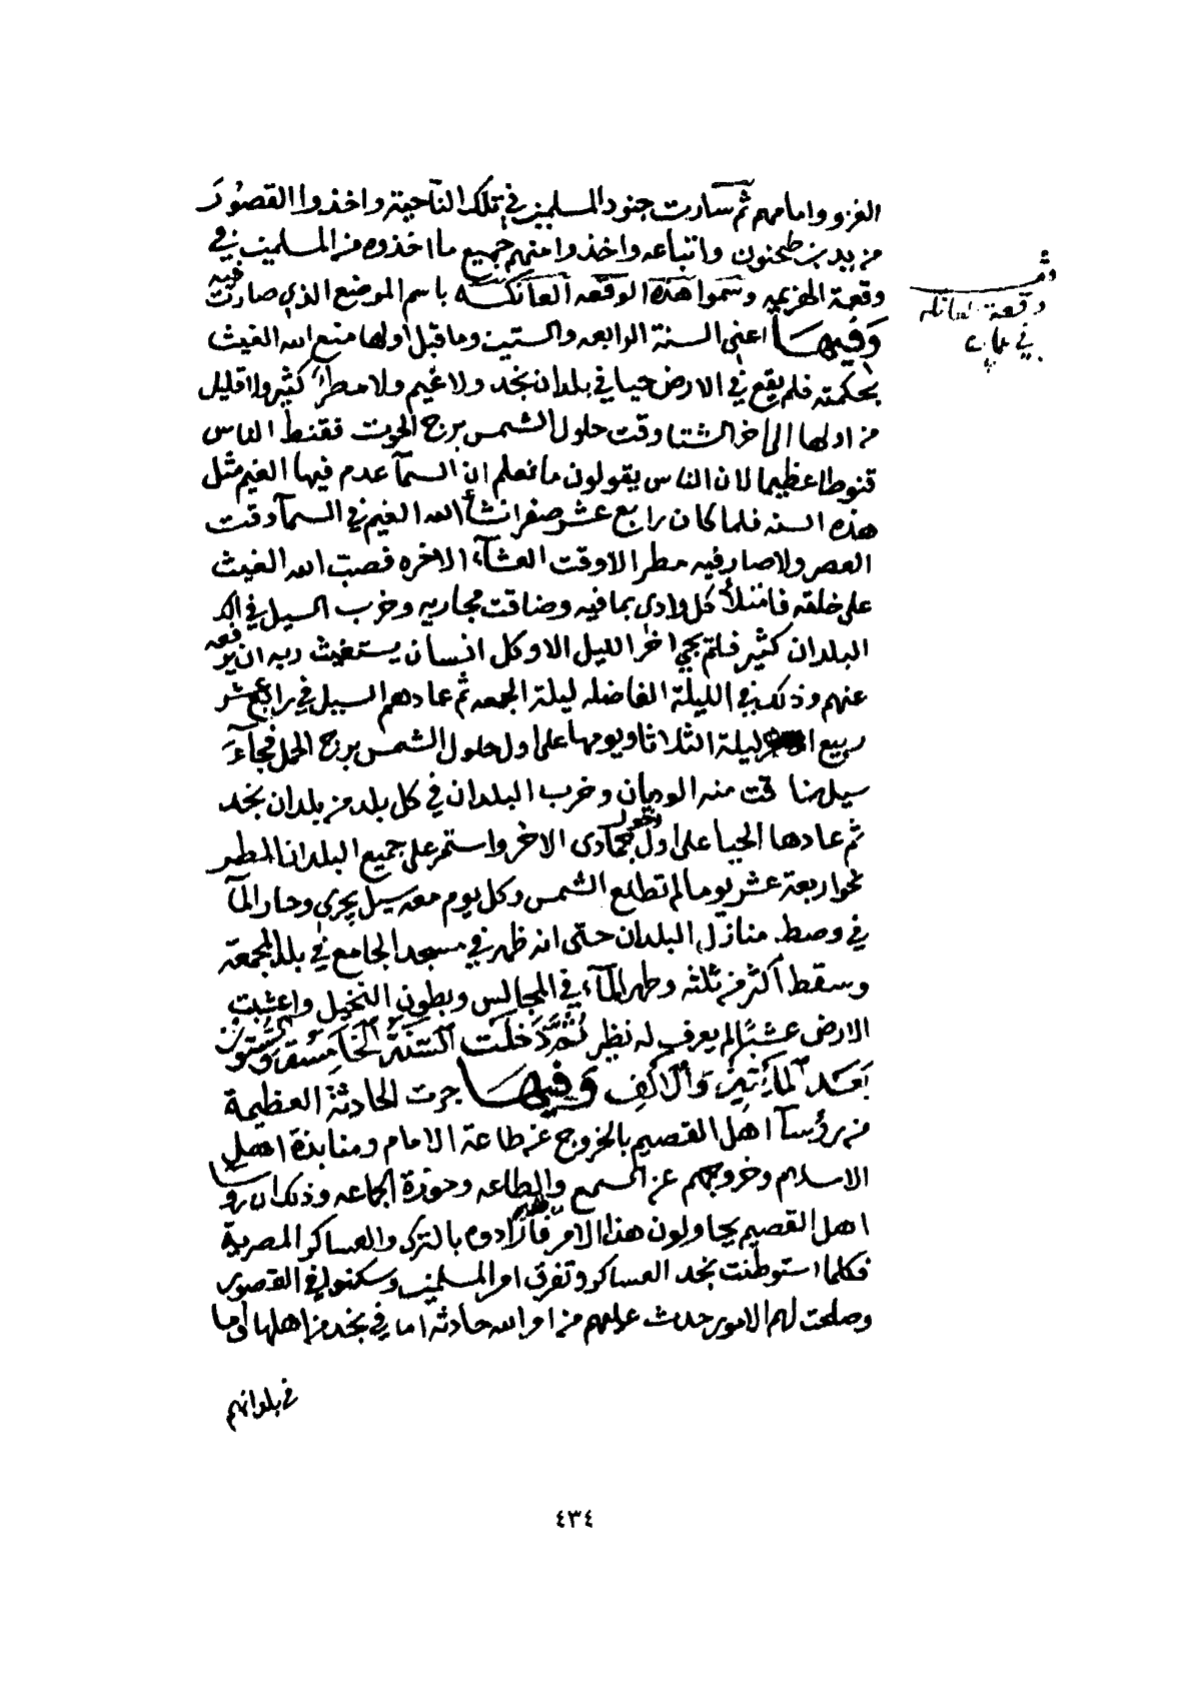 الغزو وامامهم ثم سارت جنود المسلمين في تلك الناحية واخذوا القصور
من يد بن طحنون واتباعه واخذوا منهم جميع ما اخذوه من المسلمين في
وقعة الهزيمه وسموا هذه الوقعه العانكه باسم الموضع الذي صارت فيه
وقعة العانكه
في عمان
وفيها اعني السنة الرابعه والستين وما قبل اولها منع الله الغيث
بحكمته فلم يقع في الارض حيا في بلدان نجد ولا غيم ولا مطر كثير ولا قليل
من اولها الى اخر الشتا وقت حلول الشمس برج الحوت فقنط الناس
قنوطا عظيما لان الناس يقولون ما نعلم ان السمآ عدم فيها الغيم مثل
هذه السنه فلما كان رابع عشر صفر انشأ الله الغيم في السمآ وقت
العصر ولا صار فيه مطر الا وقت العشآء الاخره فصب الله الغيث
على خلقه فامتلأ كل وادي بما فيه وضاقت مجاريه وخرب السيل في
البلدان كثير فلم يجي اخر الليل الا وكل انسان يستغيث ربه ان يرفعه
عنهم وذلك في الليلة الفاضله ليلة الجمعه ثم عادهم السيل في رابع عشر
ربيع ليلة الثلاثا ويومها على اول حلول الشمس برج الحمل فجآء
سيل ضاقت منه الوديان وخرب البلدان في كل بلد من بلدان نجد
ثم عادها الحيا على اول دخول جمادى الاخر واستمر على جميع البلدان المطر
نحو اربعة عشر يوما لم تطلع الشمس وكل يوم معه سيل يجري وحار المآ
في وسط منازل البلدان حتى انه ظهر في مسجد الجامع في بلد المجمعة
وسقط اكثر من ثلثه وظهر المآء في المجالس وبطون النخيل واعشبت
الارض عشبًا لم يعرف له نظير ثُمَّ دَخَلَت السَّنَةُ الخَامِسَةُ وَالسِّتُّون
بَعْدَ المَأتَين وَالأَلف وَفيهَا جرت الحادثة العظيمة
من رؤسآ اهل القصيم بالخروج عن طاعة الامام ومنابذة اهل
الاسلام وخروجهم عن السمع والطاعه وحوزة الجماعه وذلك ان روسا
اهل القصيم يحاولون هذا الامر فارادوه بالترك والعساكر المصرية
فكلما استوطنت نجد العساكر وتفرق امر المسلمين وسكنوا في القصور
وصلحت لهم الامور حدث عليهم من امر الله حادثه اما في نجد من اهلها او ما
في بلدانهم
٤٣٤